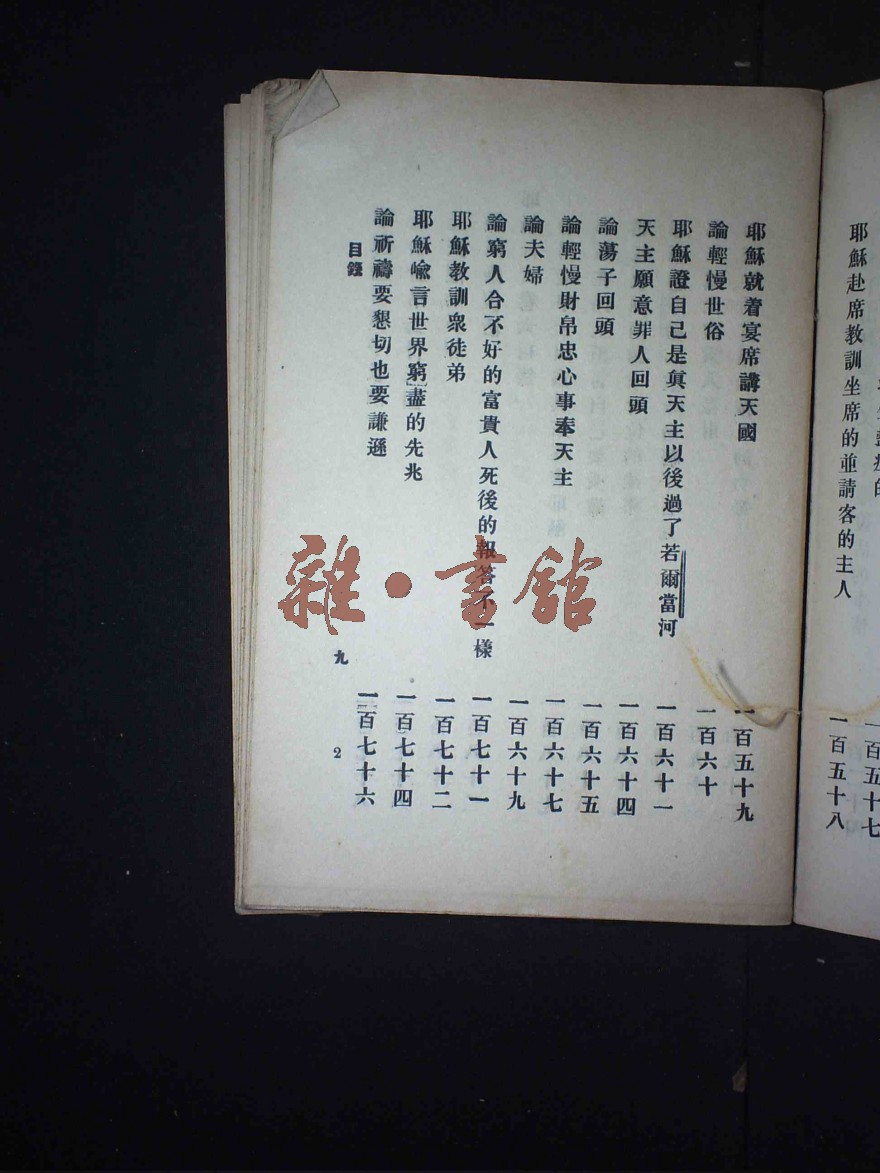 耶穌赴席教訓坐席的並請客的主人 一百五十八
耶穌就着宴席講天國 一百五十九
論輕慢世俗 一百六十
耶穌證自己是眞天主以後過了若爾當河 一百六十一
天主願意罪人回頭 一百六十四
論蕩子回頭 一百六十五
論輕慢財帛忠心事奉天主 一百六十七
論夫婦 一百六十九
論窮人合不好的富貴人死後的報答不一樣 一百七十一
耶穌教訓衆徒弟 一百七十二
耶穌喩言世界窮盡的先兆 一百七十四
論祈禱要懇切也要謙遜 一百七十六
目錄 九 2
雜·書館